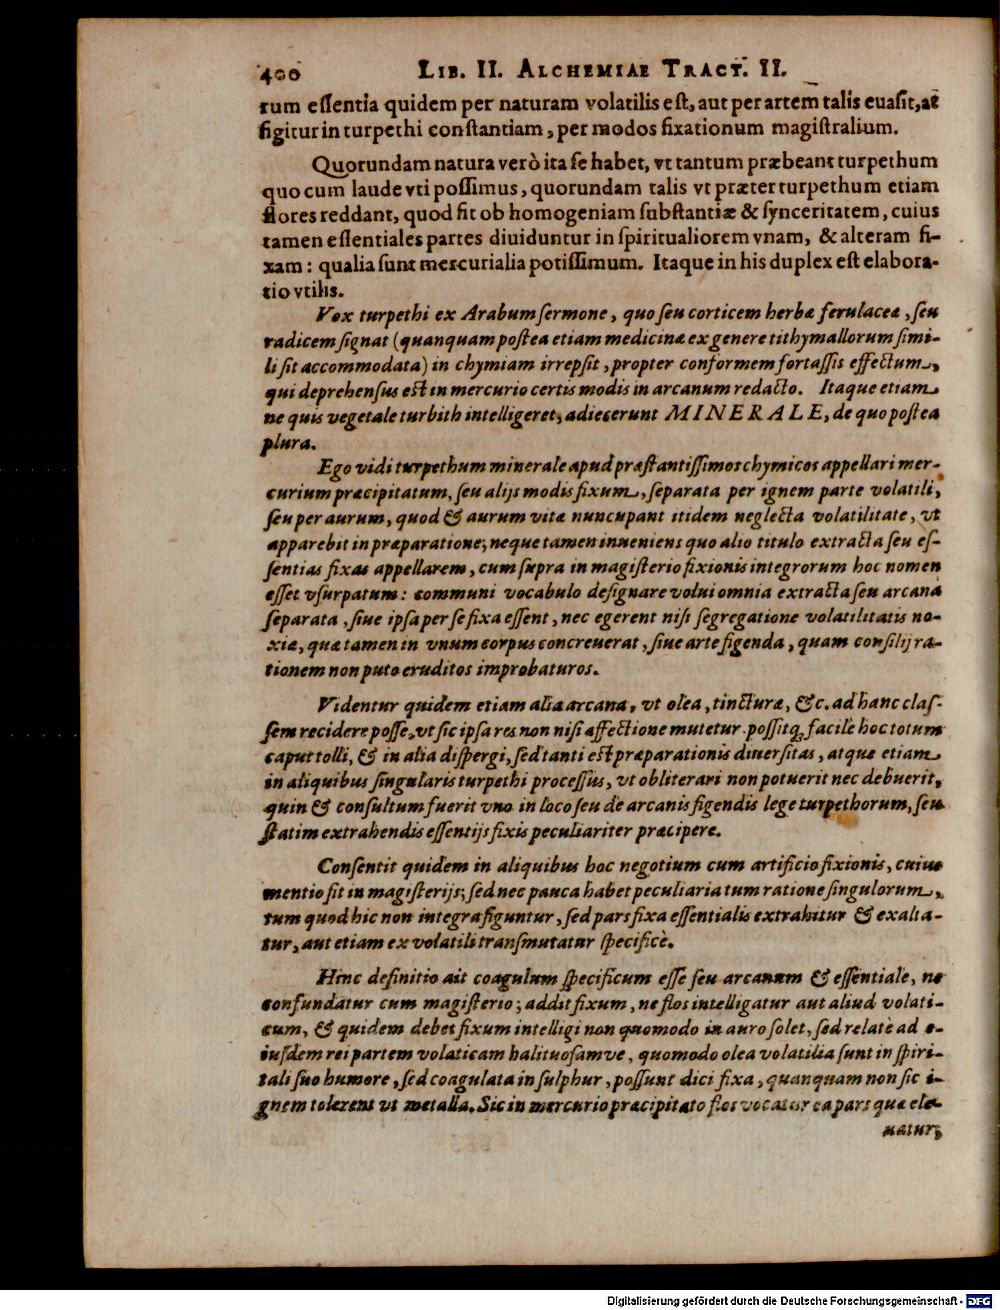 400 LIB. II. ALCHEMIAE TRACT. II.
rum eſſentia quidem per naturam volatilis eſt, aut per artem talis euaſit, at
figitur in turpethi conſtantiam, per modos fixationum magiſtralium.
Quorundam natura verò ita ſe habet, vt tantum præbeant turpethum
quo cum laude vti poſſimus, quorundam talis vt præter turpethum etiam
flores reddant, quod fit ob homogeniam ſubſtantiæ & ſynceritatem, cuius
tamen eſſentiales partes diuiduntur in ſpiritualiorem vnam, & alteram fi-
xam: qualia ſunt mercurialia potiſſimum. Itaque in his duplex eſt elabora-
tio vtilis.
Vox turpethi ex Arabum ſermone, quo ſeu corticem herbæ ferulaceæ, ſeu
radicem ſignat (quanquam poſtea etiam medicinæ ex genere tithymallorum ſimi-
li ſit accommodata) in chymiam irrepſit, propter conformem fortaſſis effectum,
qui deprehenſus eſt in mercurio certis modis in arcanum redacto. Itaque etiam
ne quis vegetale turbith intelligeret, adiecerunt MINERALE, de quo poſtea
plura.
Ego vidi turpethum minerale apud præſtantiſſimos chymicos appellari mer-
curium præcipitatum, ſeu alijs modis fixum, ſeparata per ignem parte volatili,
ſeu per aurum, quod & aurum vitæ nuncupant itidem neglecta volatilitate, vt
apparebit in præparatione; neque tamen inueniens quo alio titulo extracta ſeu eſ-
ſentias fixas appellarem, cum ſupra in magiſterio fixionis integrorum hoc nomen
eſſet vſurpatum: communi vocabulo deſignare volui omnia extracta ſeu arcana
ſeparata, ſiue ipſa per ſe fixa eſſent, nec egerent niſi ſegregatione volatilitatis no-
xiæ, quæ tamen in vnum corpus concreuerat, ſiue arte figenda, quam conſilij ra-
tionem non puto eruditos improbaturos.
Videntur quidem etiam alia arcana, vt olea, tincturæ, &c. ad hanc claſ-
ſem recidere poſſe, vt ſic ipſa res non niſi affectione mutetur poſſitq́; facile hoc totum
caput tolli, & in alia diſpergi, ſed tanti eſt præparationis diuerſitas, atque etiam
in aliquibus ſingularis turpethi proceſſus, vt obliterari non potuerit nec debuerit,
quin & conſultum fuerit vno in loco ſeu de arcanis figendis lege turpethorum, ſeu
ſtatim extrahendis eſſentijs fixis peculiariter præcipere.
Conſentit quidem in aliquibus hoc negotium cum artificio fixionis, cuius
mentio fit in magiſterijs; ſed nec pauca habet peculiaria tum ratione ſingulorum,
tum quod hic non integra figuntur, ſed pars fixa eſſentialis extrahitur & exalta-
tur, aut etiam ex volatili tranſmutatur ſpecificè.
Hinc definitio ait coagulum ſpecificum eſſe ſeu arcanum & eſſentiale, ne
confundatur cum magiſterio; addit fixum, ne flos intelligatur aut aliud volati-
cum, & quidem debet fixum intelligi non quomodo in auro ſolet, ſed relatè ad e-
iuſdem rei partem volaticam halituoſamve, quomodo olea volatilia ſunt in ſpiri-
tali ſuo humore, ſed coagulata in ſulphur, poſſunt dici fixa, quanquam non ſic i-
gnem tolerent vt metalla. Sic in mercurio præcipitato flos vocatur ea pars quæ ele-
uatur,
Digitalisierung gefördert durch die Deutsche Forschungsgemeinschaft - DFG